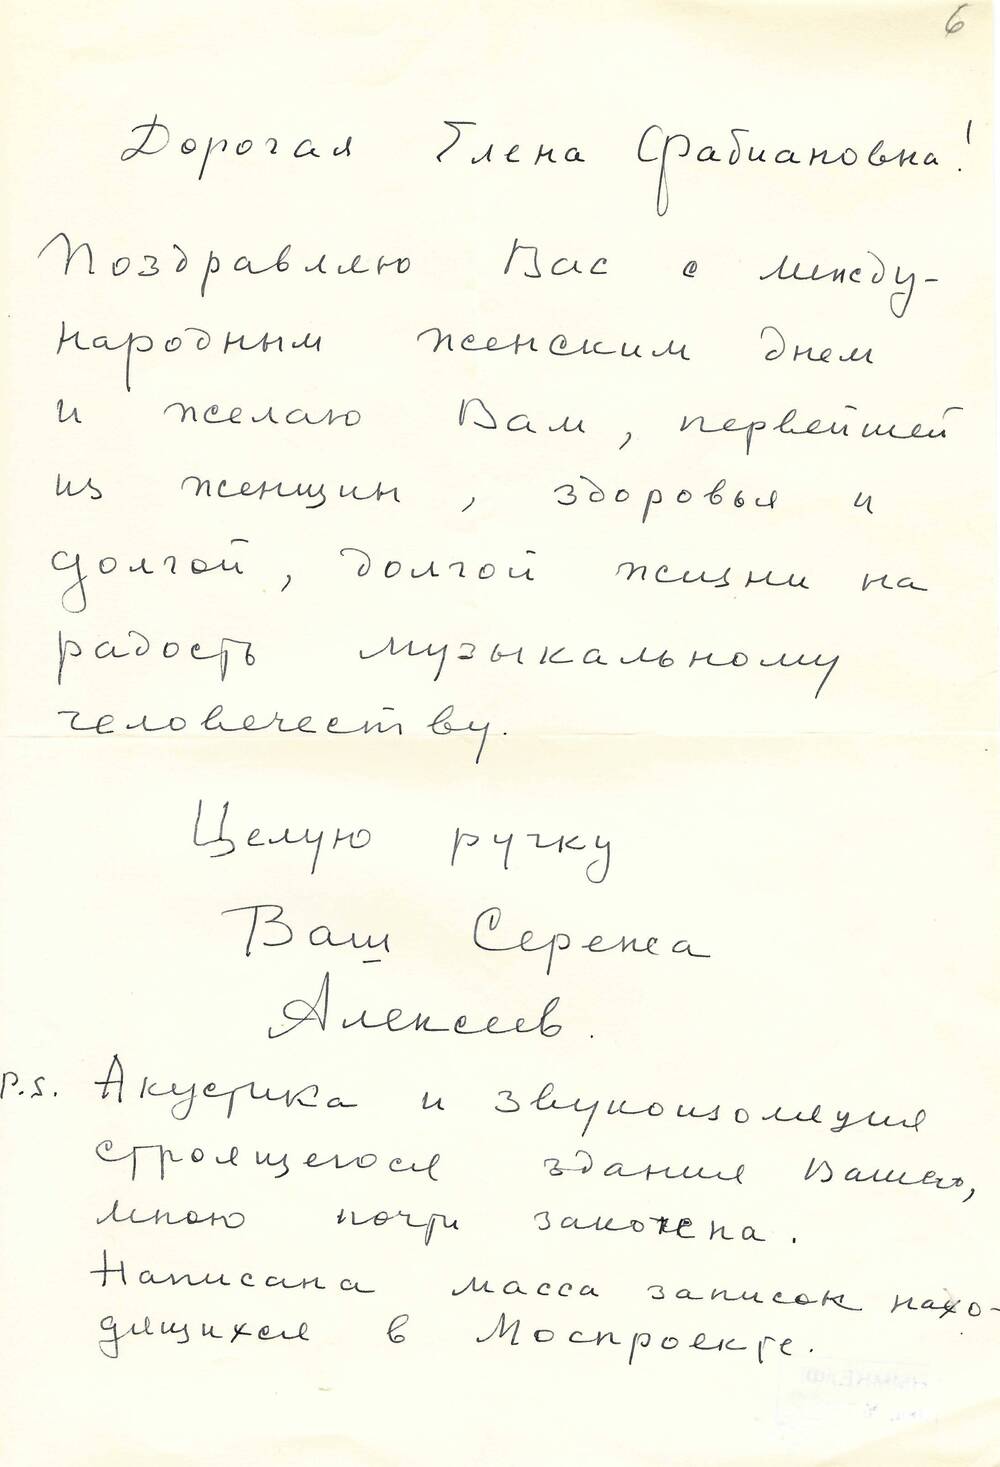 6
Дорогая Елена Фабиановна!
Поздравляю Вас с между-
народным женским днем
и желаю Вам, первейшей
из женщин, здоровья и
долгой, долгой жизни на
радость музыкальному
человечеству.
Целую ручку
Ваш Сережа
Алексеев.
P.S. Акустика и звукоизоляция
строящегося здания Вашего,
мною почти закочена.
Написана масса записок нахо-
дящихся в Моспроекте.